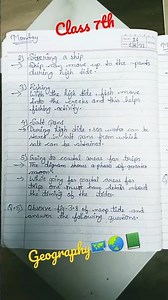 Class 7th
Monday
2) Steering a ship
→ Ship can move up to the ports
during high tide.
3) Fishing
→ With the high tide fish move
into the creeks and this helps
fishing activity.
4) Salt pans
→ During high tide sea water can be
stored in salt pans from which
salt can be obtained.
5) Going to coastal areas for trips
→ The diagram shows a phase of quarter
moon.
→ While going for coastal areas for
trips one must have details about
the timing of the tides.
Q.5) Observe fig 3.8 of neap tide and
answer the following questions.
Geography